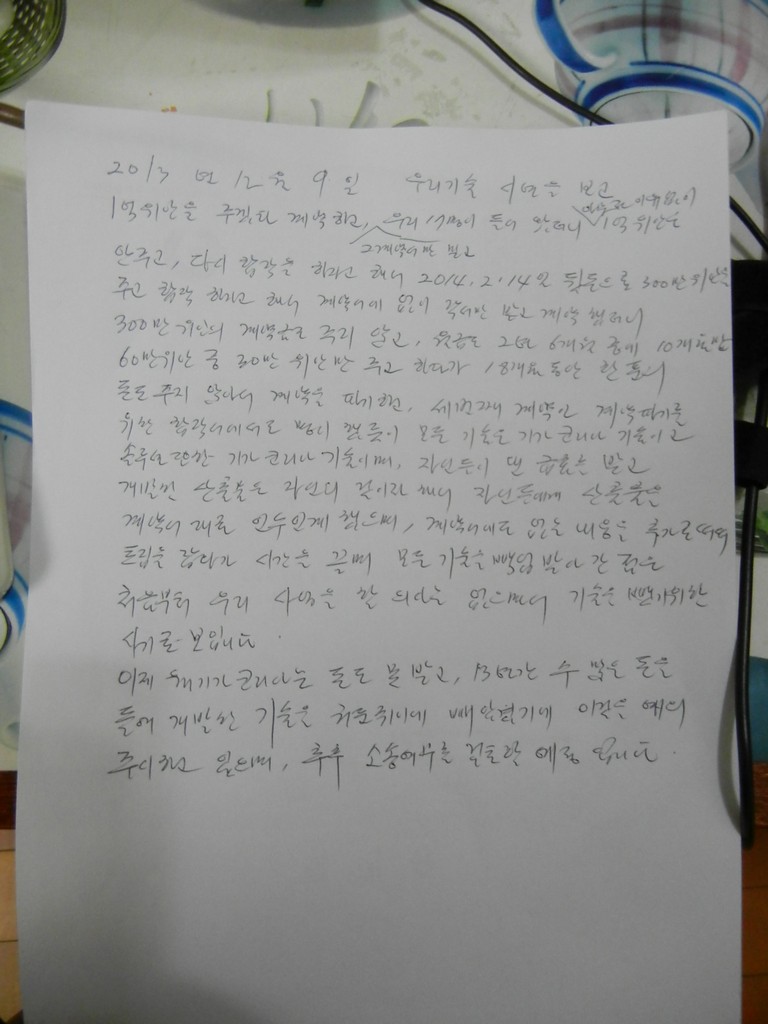 2013 년 12 월 9 일 우리기술 시연을 보고
1억위안을 주겠다 계약하고, 우리 기명이 들어 왔더니 아무런 이유없이 1억위안을
그계약서만 받고
안주고, 다시 합작을 하자고 해서 2014. 2. 14일 뒷돈으로 300만 위안을
주고 합작 하자고 해서 계약서에 없이 각서만 받고 계약 했더니
300만 위안의 계약금도 주지 않고, 월급도 2년 6개월 중에 10개월만
60만위안 중 30만 위안만 주고 하다가 18개월 동안 한 푼의
돈도 주지 않아서 계약을 파기한, 세번째 계약인 계약파기를
위한 합작서에서도 명시 했듯이 모든 기술은 기가 코리아 기술이고
솔루션 또한 기가 코리아 기술이며, 자신들이 낸 급료를 받고
개발한 산출물은 자신의 것이라 해서 자신들에게 산출물은
계약서 대로 인수인계 했으며, 계약서에도 없는 내용을 추가로
트집을 잡다가 시간을 끌며 모든 기술을 백업 받아 간 점은
처음부터 우리 사업을 할 의사는 없으면서 기술을 빼가기위한
사기로 보입니다.
이제 기가코리아는 돈도 못 받고, 13년간 수 많은 돈을
들여 개발한 기술은 빼앗겼기에 이것을 예의
주시하고 있으며, 추후 소송여부를 검토할 예정 입니다.